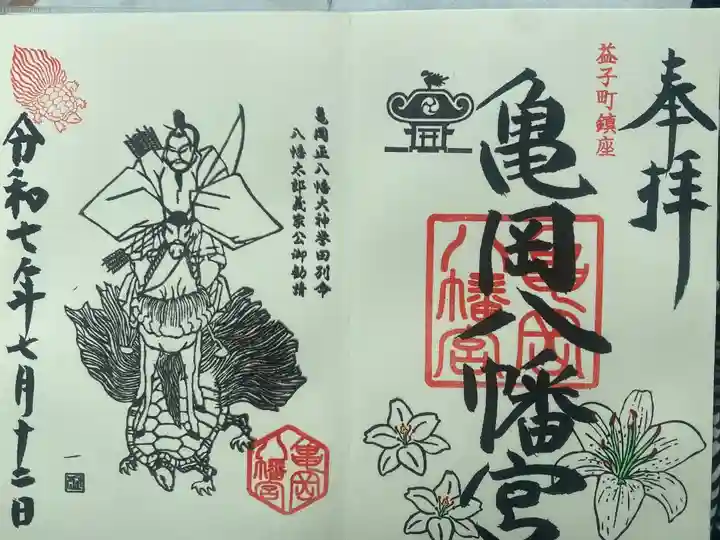 奉拝
益子町鎮座
亀岡八幡宮
亀岡八幡宮
亀岡正八幡大神誉田別命
八幡太郎義家公御勧請
亀岡
八幡宮
令和七年七月十二日
一